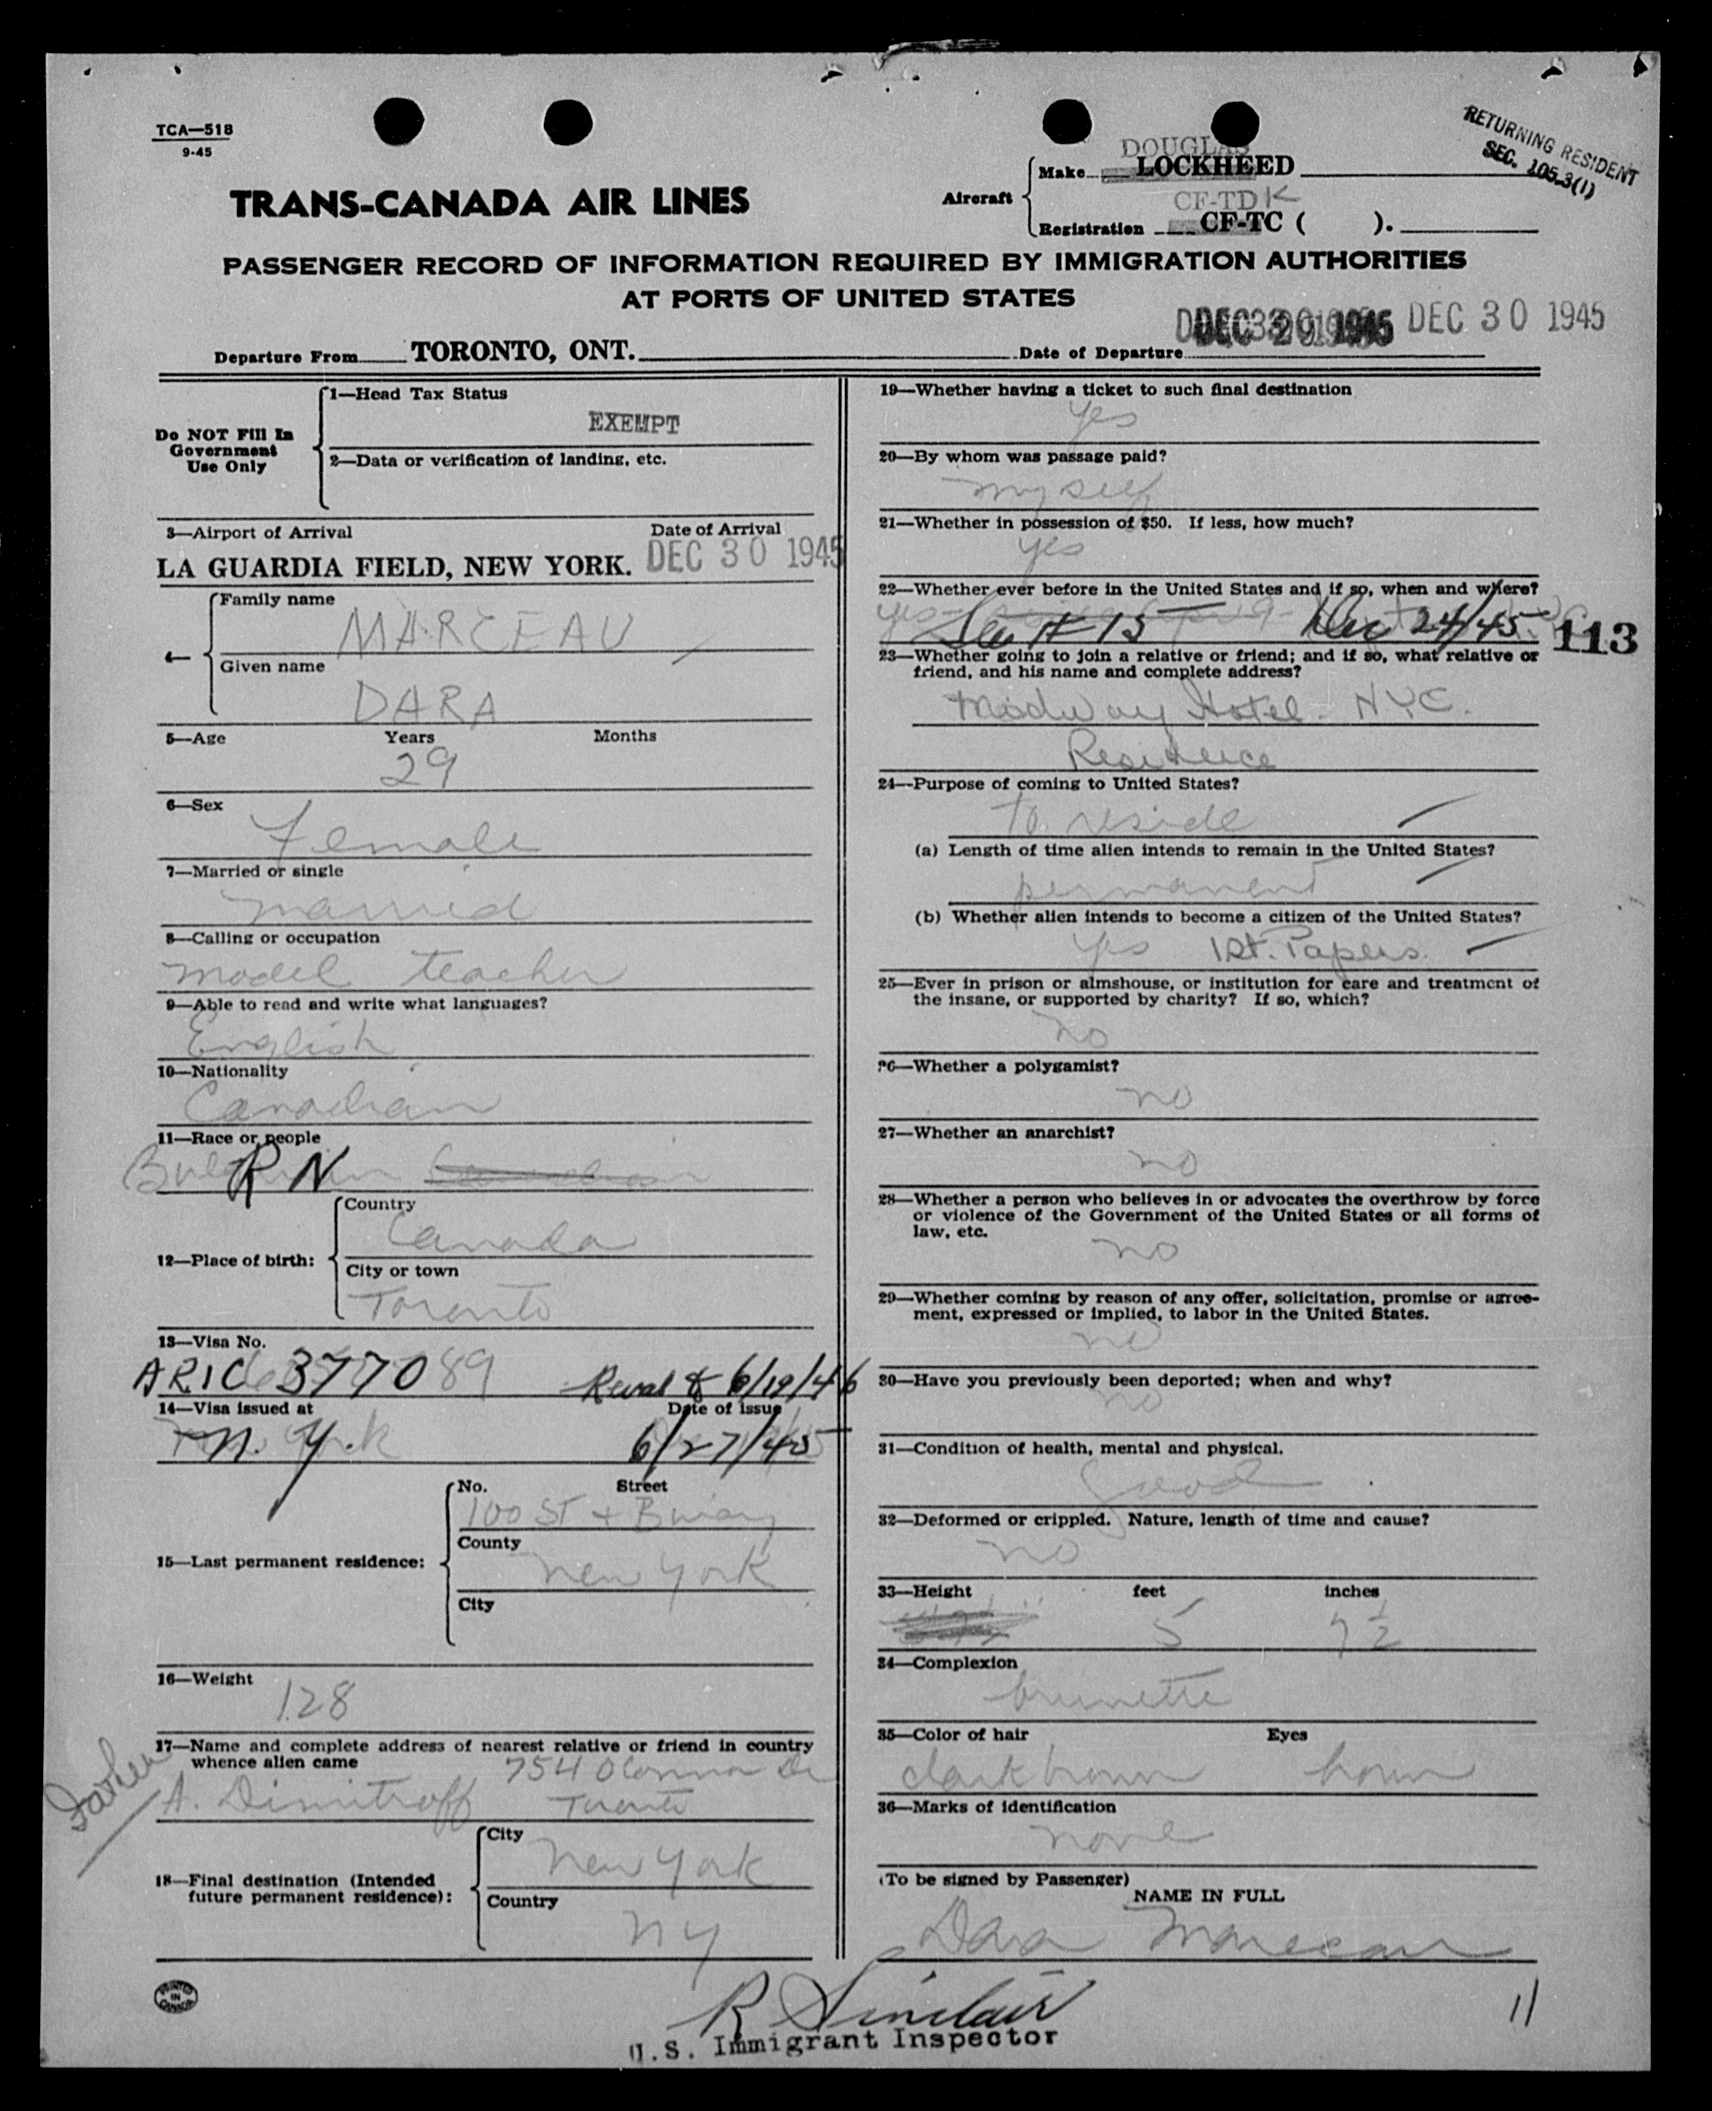 TCA—518
9-45
RETURNING RESIDENT
SEC. 105.3(1)
TRANS-CANADA AIR LINES
Aircraft
DOUGLAS
Make LOCKHEED
CF-TDK
Registration CF-TC ( ).
PASSENGER RECORD OF INFORMATION REQUIRED BY IMMIGRATION AUTHORITIES
AT PORTS OF UNITED STATES
Departure From TORONTO, ONT. Date of Departure DEC 30 1945
Do NOT Fill In
Government
Use Only
1—Head Tax Status
EXEMPT
2—Data or verification of landing, etc.
3—Airport of Arrival Date of Arrival
LA GUARDIA FIELD, NEW YORK. DEC 30 1945
4—
Family name
MARCEAU
Given name
DARA
5—Age Years Months
29
6—Sex
Female
7—Married or single
married
8—Calling or occupation
model teacher
9—Able to read and write what languages?
English
10—Nationality
Canadian
11—Race or people
R N
12—Place of birth:
Country
Canada
City or town
Toronto
13—Visa No.
ARIC 377089 6/19/46
14—Visa issued at Date of issue
N.Y. 6/27/45
15—Last permanent residence:
No. Street
100 ST + Bway
County
New York
City
16—Weight
128
17—Name and complete address of nearest relative or friend in country
whence alien came
754 OConnor Dr
Father
A. Dimitroff Toronto
18—Final destination (Intended
future permanent residence):
City
New York
Country
NY
19—Whether having a ticket to such final destination
yes
20—By whom was passage paid?
myself
21—Whether in possession of $50. If less, how much?
yes
22—Whether ever before in the United States and if so, when and where?
yes Dec 24/45
113
23—Whether going to join a relative or friend; and if so, what relative or
friend, and his name and complete address?
Midway Hotel - N.Y.C.
Residence
24—Purpose of coming to United States?
to reside
(a) Length of time alien intends to remain in the United States?
permanent
(b) Whether alien intends to become a citizen of the United States?
yes 1st. Papers.
25—Ever in prison or almshouse, or institution for care and treatment of
the insane, or supported by charity? If so, which?
no
26—Whether a polygamist?
no
27—Whether an anarchist?
no
28—Whether a person who believes in or advocates the overthrow by force
or violence of the Government of the United States or all forms of
law, etc.
no
29—Whether coming by reason of any offer, solicitation, promise or agree-
ment, expressed or implied, to labor in the United States.
no
30—Have you previously been deported; when and why?
no
31—Condition of health, mental and physical.
Good
32—Deformed or crippled. Nature, length of time and cause?
no
33—Height feet inches
5 7 1/2
34—Complexion
brunette
35—Color of hair Eyes
dark brown brown
36—Marks of identification
none
(To be signed by Passenger)
NAME IN FULL
Dara Marceau
PRINTED IN CANADA
R Sinclair
U.S. Immigrant Inspector
11